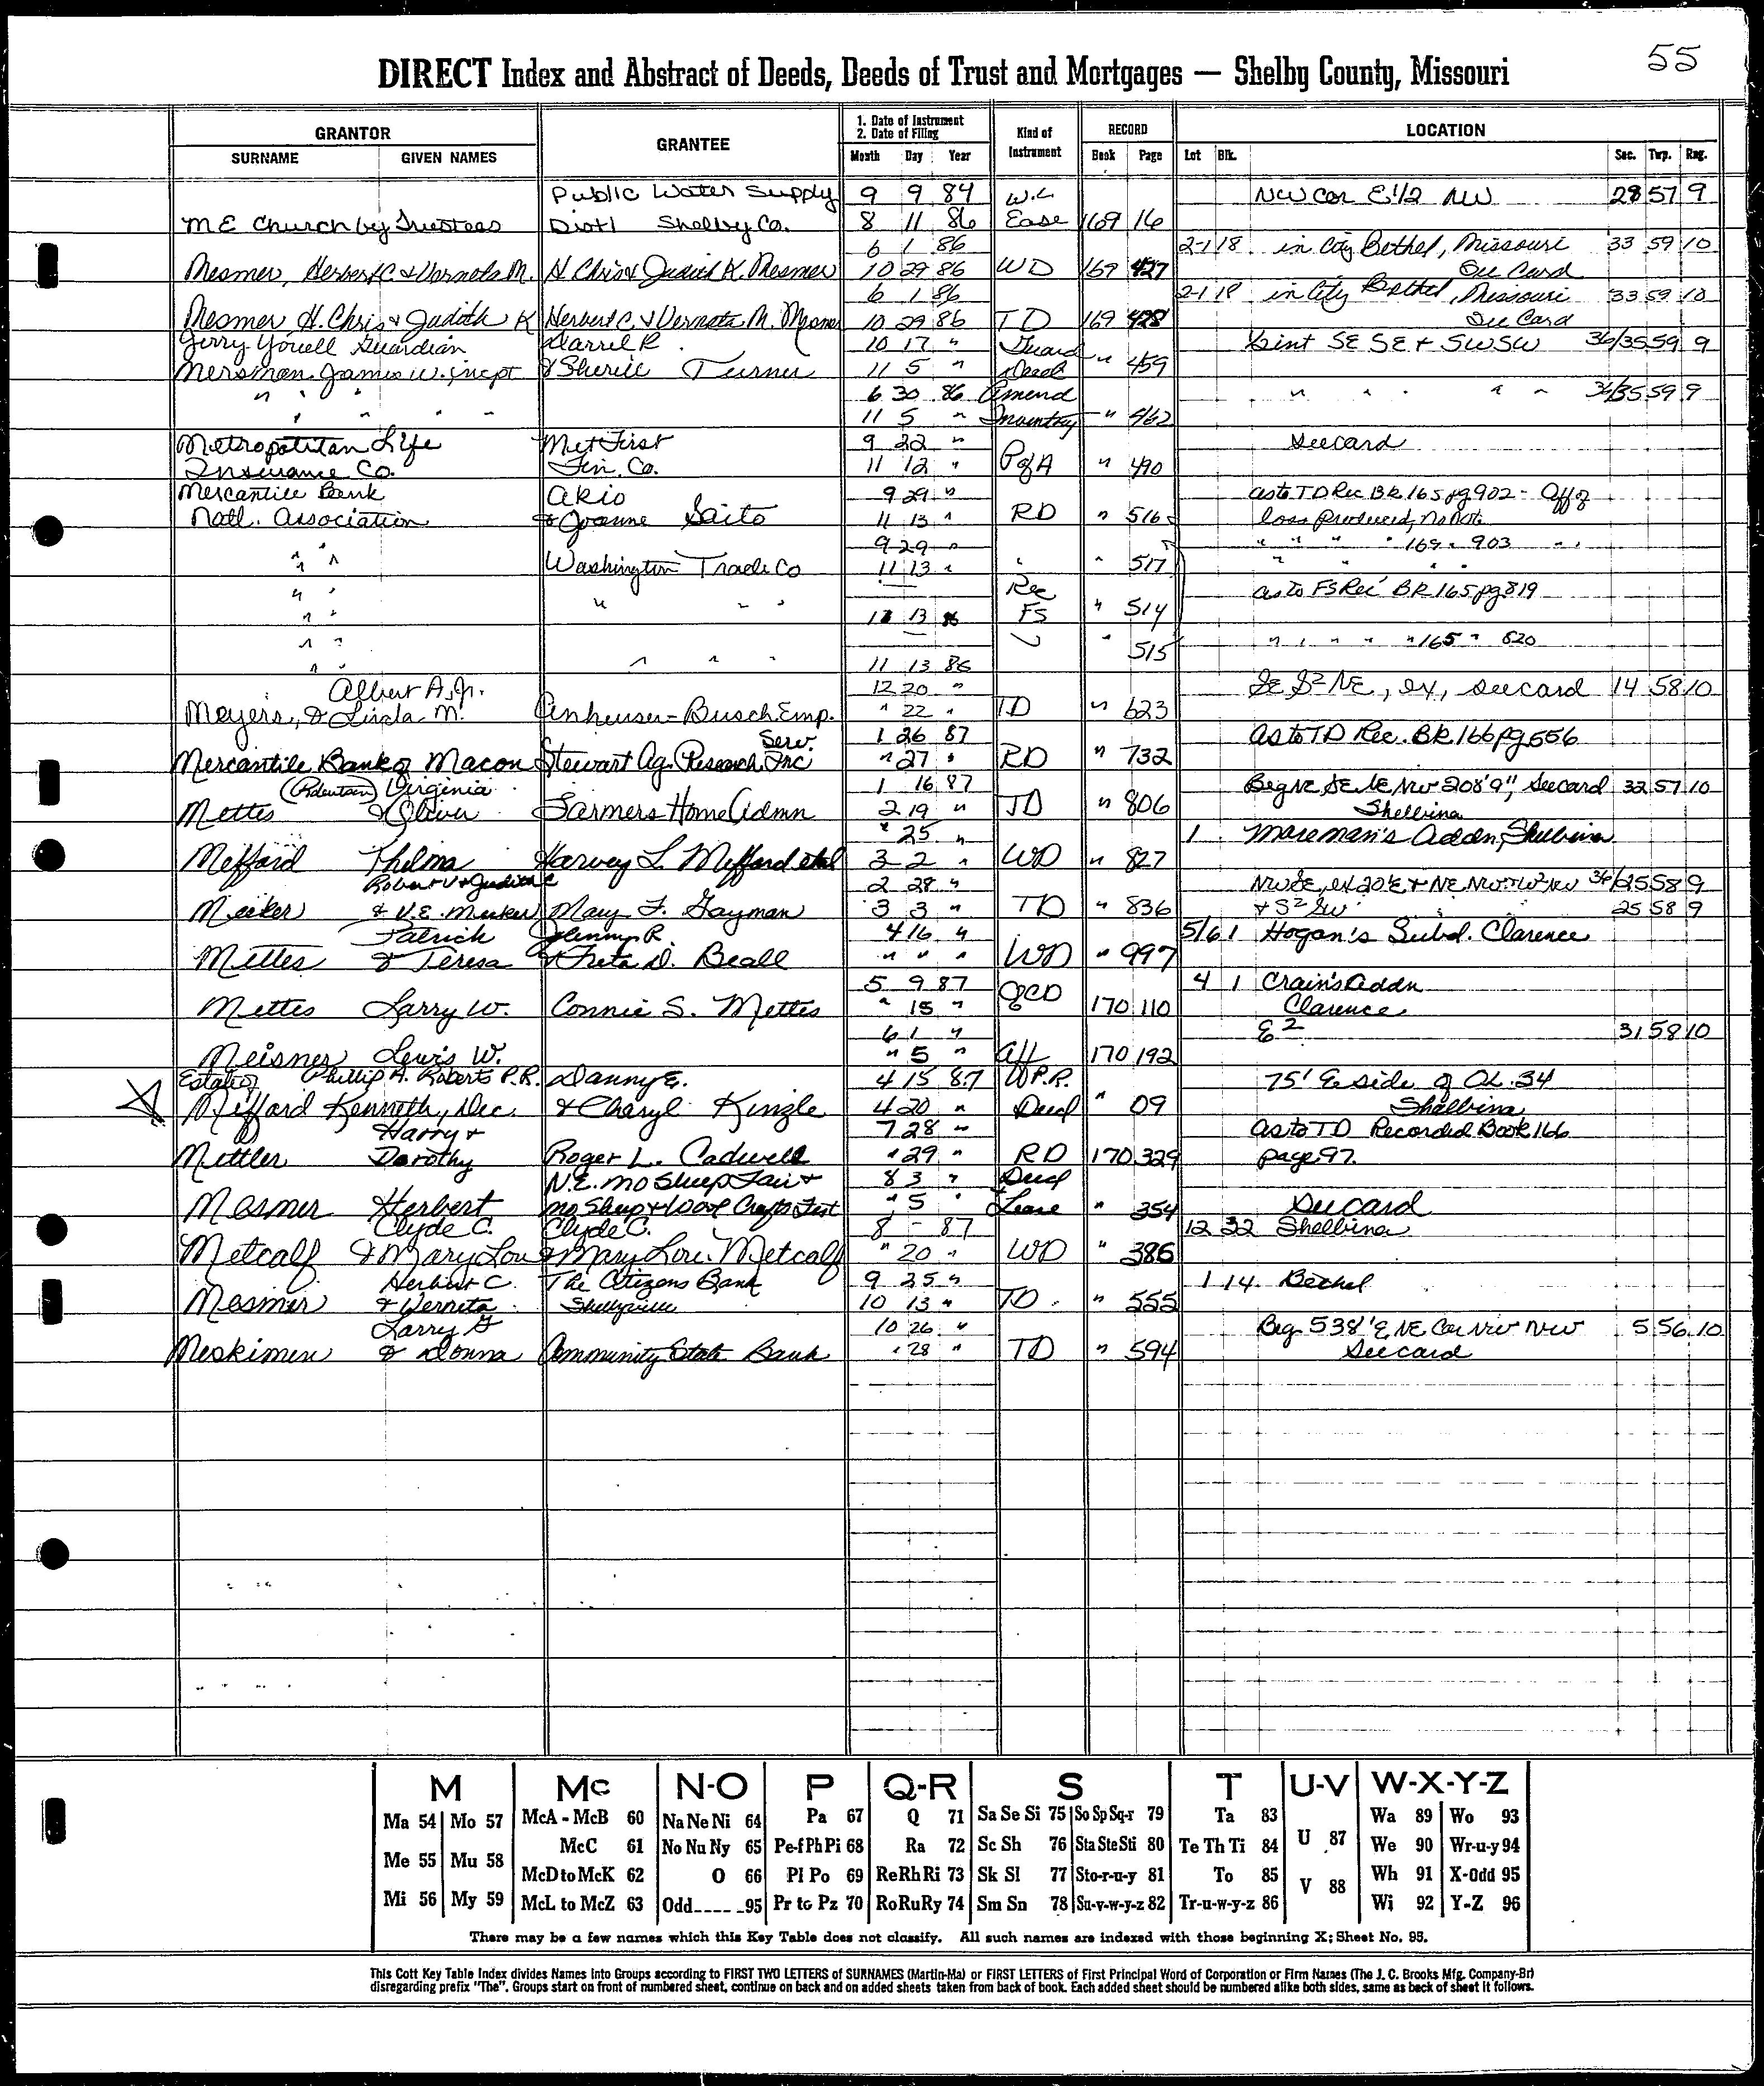 55
DIRECT Index and Abstract of Deeds, Deeds of Trust and Mortgages — Shelby County, Missouri
GRANTOR GRANTEE 1. Date of Instrument 2. Date of Filing Kind of Instrument RECORD LOCATION
SURNAME GIVEN NAMES Month Day Year Book Page Lot Blk. Sec. Twp. Rng.
Public Water Supply 9 9 84 W.L NW cor E 1/2 NW 28 57 9
M E Church by Trustees Dist 1 Shelby Co. 8 11 86 Ease 169 16
6 1 86 2-1 18 in City Bethel, Missouri 33 59 10
Mesmer, Herbert C & Verneta M. H. Chris & Judith K. Mesmer 10 29 86 WD 169 427 See Card
6 1 86 2-1 18 in City Bethel, Missouri 33 59 10
Mesmer H. Chris & Judith K Herbert C. & Verneta M. Mesmer 10 29 86 TD 169 428 See Card
Jerry Youell Guardian Darrel R. 10 17 " Guard SE SE & SW SW 36/35 59 9
Mersman James W. incpt & Sherill Turner 11 5 " Deed " 459
" " " 6 30 86 Amend " " " " " 36/35 59 9
" " " " 11 5 " Inventry " 462
Metropolitan Life Met First 9 22 " See card
Insurance Co. Fin. Co. 11 12 " PofA " 490
Mercantile Bank Akio 9 29 " as to TD Rec Bk 165 pg 902 - Aff of
Natl. Association & Joanne Saito 11 13 " RD " 516 loss Produced, No Note
9 29 " " " " " 169 " 903 " "
" " Washington Trade Co 11 13 " " " 517 " " "
" " Rec as to FS Rec Bk 165 pg 819
" " " " " 11 13 86 FS " 514
" " " 515 " " " " " 165 " 820
" " " " " 11 13 86
Albert A. Jr. 12 20 " SE S2 NE, ex, see card 14 58 10
Meyers, & Linda M. Anheuser-Busch Emp. " 22 " TD " 623
Serv. 1 26 87 As to TD Rec. Bk 166 pg 556
Mercantile Bank of Macon Stewart Ag. Research Inc " 27 " RD " 732
Virginia 1 16 87 Beg NE SE NE NW 208'9", See card 32 57 10
Mettes & Oliver Farmers Home Admn 2 19 " TD " 806 Shelbina
" 25 " 1 Moreman's Addn, Shelbina
Mefford Thelma Harvey L. Mefford etal 3 2 " WD " 827
Robert V & Judith C 2 28 " NW SE, ex 20'E & NE NW & W2 NW 36/25 58 9
Meeker & V.E. Meeker Mary F. Gayman 3 3 " TD " 836 & S2 SW 25 58 9
Patrick Glenny R. 4 16 " 5/6 1 Hogan's Subd. Clarence
Mettes & Teresa & Freta D. Beall " " " WD " 997
5 9 87 4 1 Crain's Addn
Mettes Larry W. Connie S. Mettes " 15 " QCD 170 110 Clarence
6 1 " E2 31 58 10
Meisner Lewis W. " 5 " Aff 170 192
Estate of Phillip A. Roberts P.R. Danny E. 4 15 87 W P.R. 75' E side of OL 34
Mefford Kenneth, Dec. & Cheryl Kinzle 4 20 " Deed " 09 Shelbina
Harry & 7 28 " As to TD Recorded Book 166
Mettler Dorothy Roger L. Cadwell " 29 " RD 170 329 page 97.
N.E. Mo Sheep Fair & 8 3 " Deed
Mesmer Herbert Mo Sheep & Wool Crafts Fest " 5 " Lease " 354 See Card
Clyde C. Clyde C. 8 - 87 12 32 Shelbina
Metcalf & Mary Lou & Mary Lou Metcalf " 20 " WD " 386
Herbert C. The Citizens Bank 9 25 " 1 14 Bethel
Mesmer & Verneta Shelbyville 10 13 " TD " 555
Larry G 10 26 " Beg. 538' E NE Cor NW NW 5 56 10
Meskimen & Donna Community State Bank " 28 " TD " 594 See card
M Mc N-O P Q-R S T U-V W-X-Y-Z
Ma 54 Mo 57 McA - McB 60 Na Ne Ni 64 Pa 67 Q 71 Sa Se Si 75 So Sp Sq-r 79 Ta 83 U 87 Wa 89 Wo 93
Me 55 Mu 58 McC 61 No Nu Ny 65 Pe-f Ph Pi 68 Ra 72 Sc Sh 76 Sta Ste Sti 80 Te Th Ti 84 We 90 Wr-u-y 94
McD to McK 62 O 66 Pl Po 69 Re Rh Ri 73 Sk Sl 77 Sto-r-u-y 81 To 85 V 88 Wh 91 X-Odd 95
Mi 56 My 59 McL to McZ 63 Odd 95 Pr to Pz 70 Ro Ru Ry 74 Sm Sn 78 Su-v-w-y-z 82 Tr-u-w-y-z 86 Wi 92 Y-Z 96
There may be a few names which this Key Table does not classify. All such names are indexed with those beginning X; Sheet No. 95.
This Cott Key Table Index divides Names into Groups according to FIRST TWO LETTERS of SURNAMES (Martin-Ma) or FIRST LETTERS of First Principal Word of Corporation or Firm Names (The J. C. Brooks Mfg. Company-Br)
disregarding prefix "The". Groups start on front of numbered sheet, continue on back and on added sheets taken from back of book. Each added sheet should be numbered alike both sides, same as back of sheet it follows.